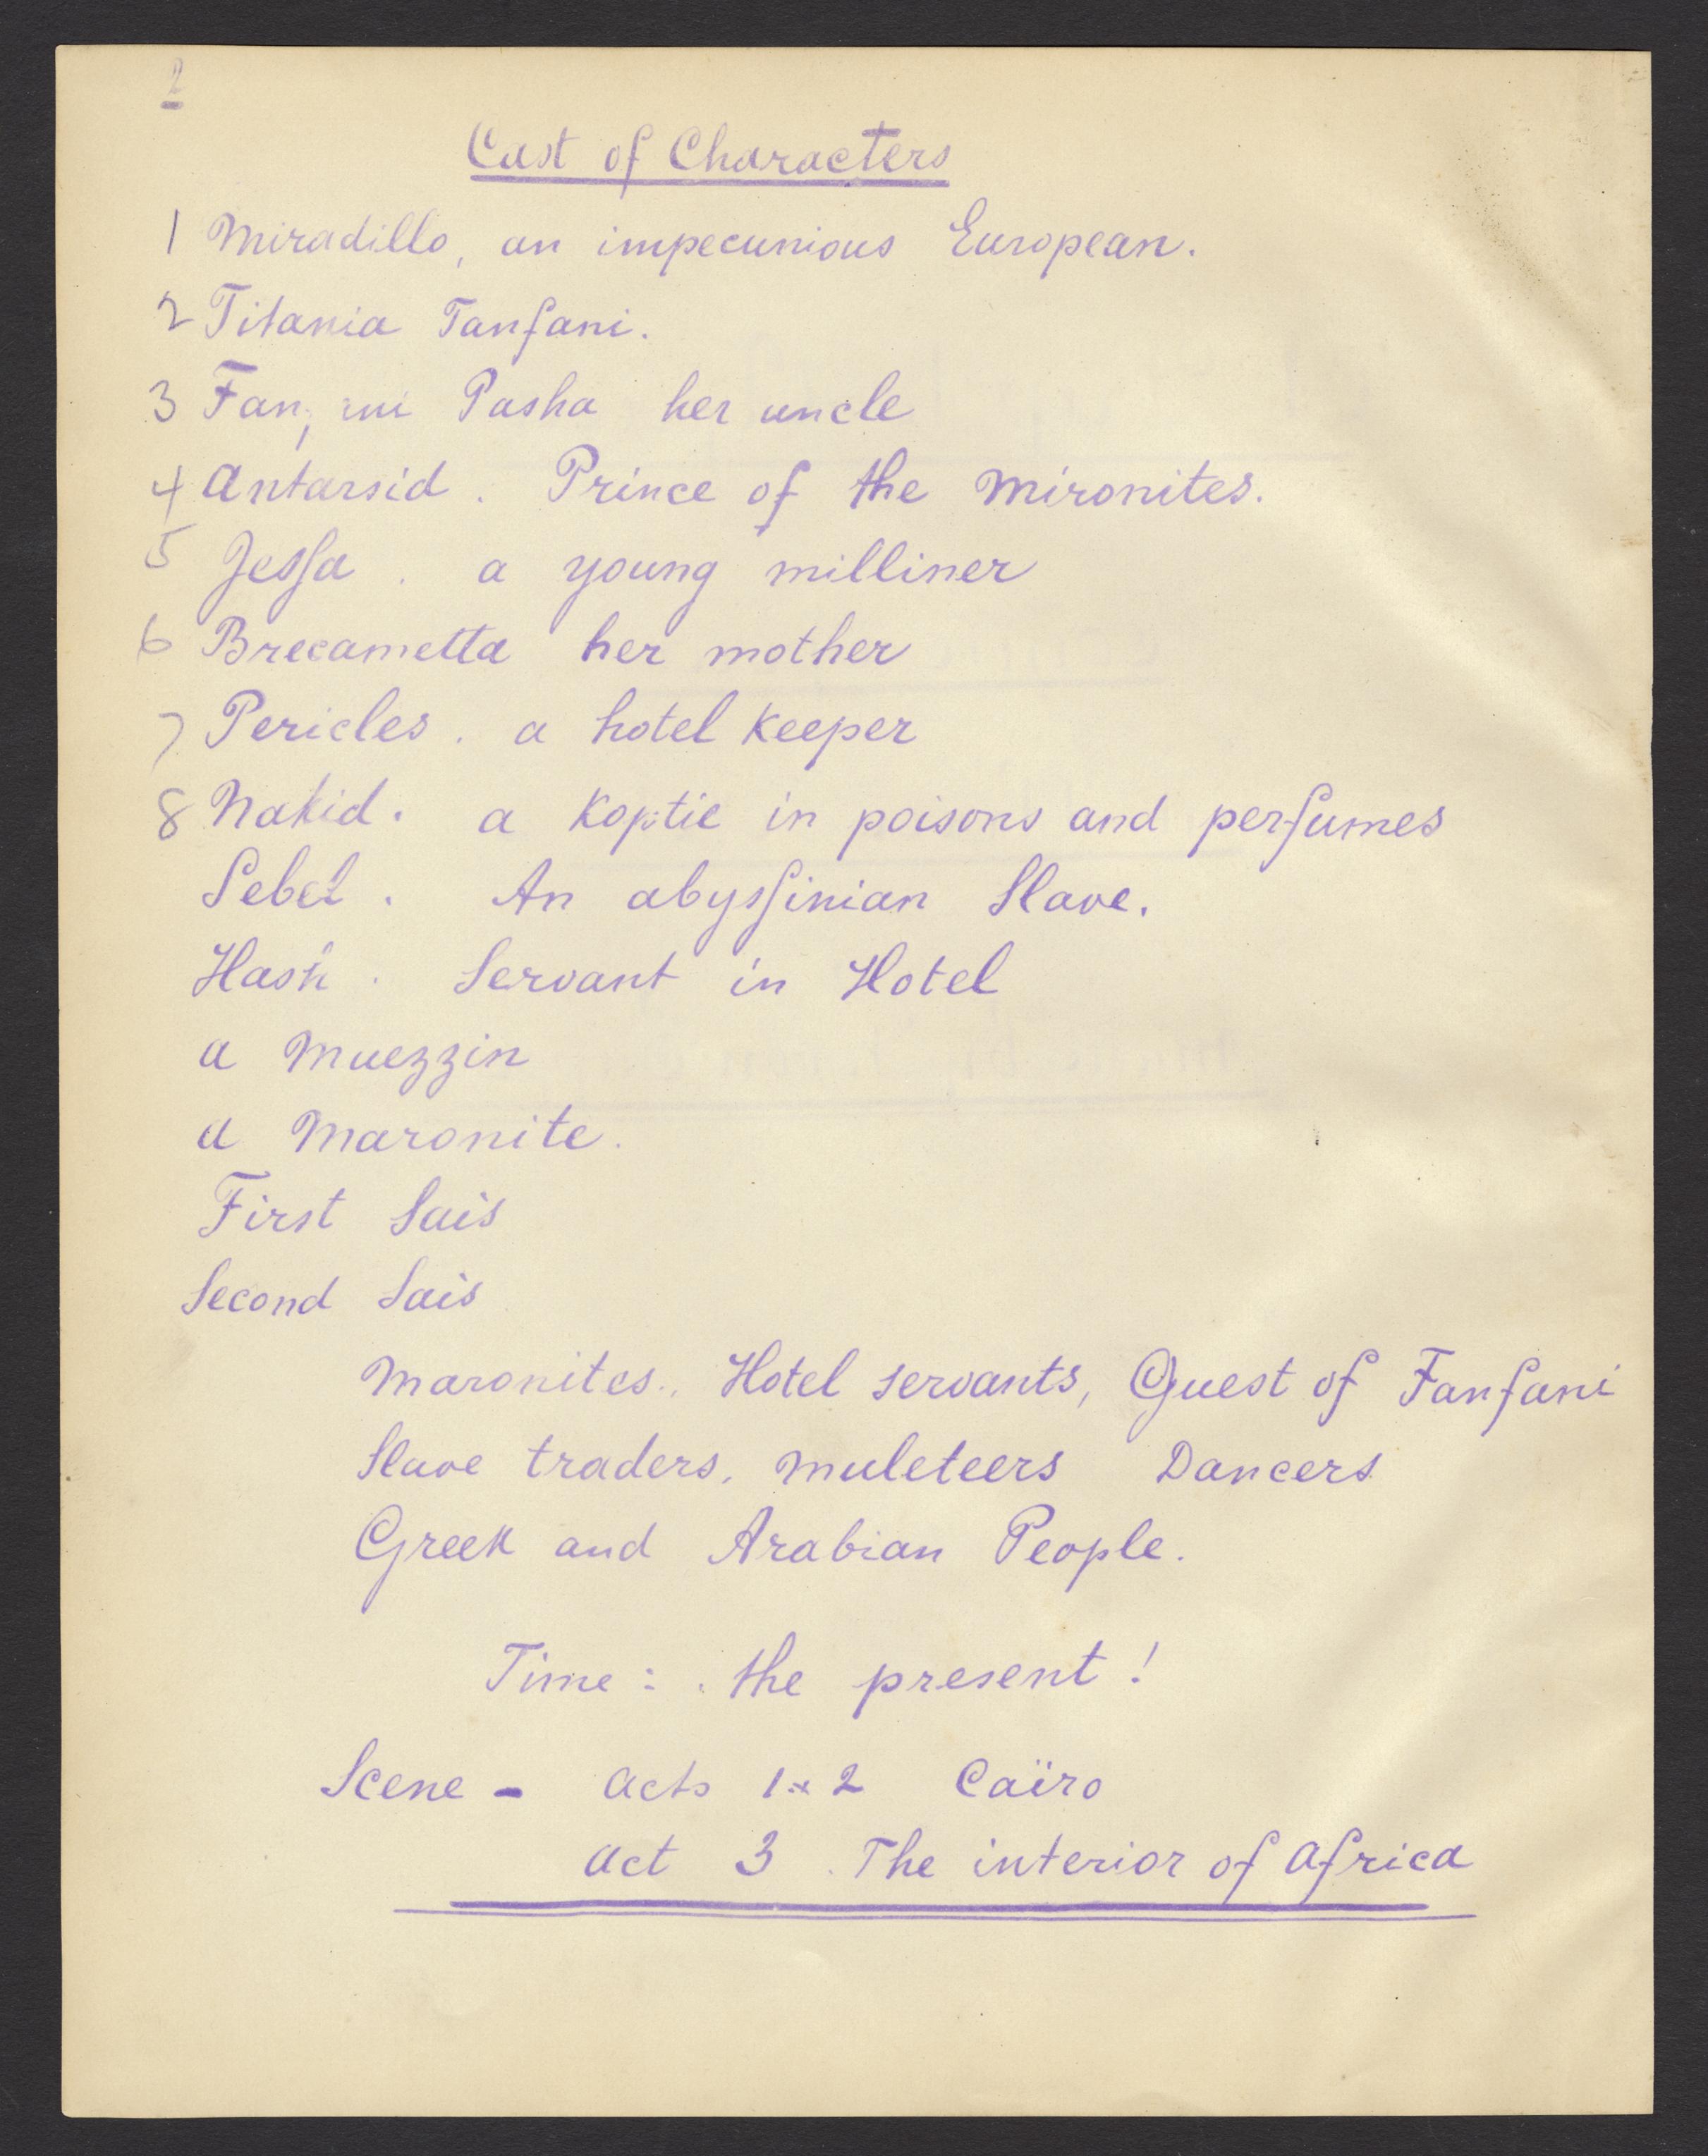 2
Cast of Characters
1 Miradillo, an impecunious European.
2 Titania Tanfani.
3 Pasha her uncle
4 Antarsid. Prince of the Mironites.
5 Jessa. a young milliner
6 Brecametta her mother
7 Pericles. a hotel Keeper
8 Nakid. a Koptic in poisons and perfumes
Sebel. An abyssinian Slave.
Hash. Servant in Hotel
a Muezzin
a Maronite.
First Sais
Second Sais
Maronites., Hotel servants, Guest of Fanfani
Slave traders. muleteers Dancers
Greek and Arabian People.
Time: the present!
Scene - Acts 1 & 2 Caïro
Act 3. The interior of Africa